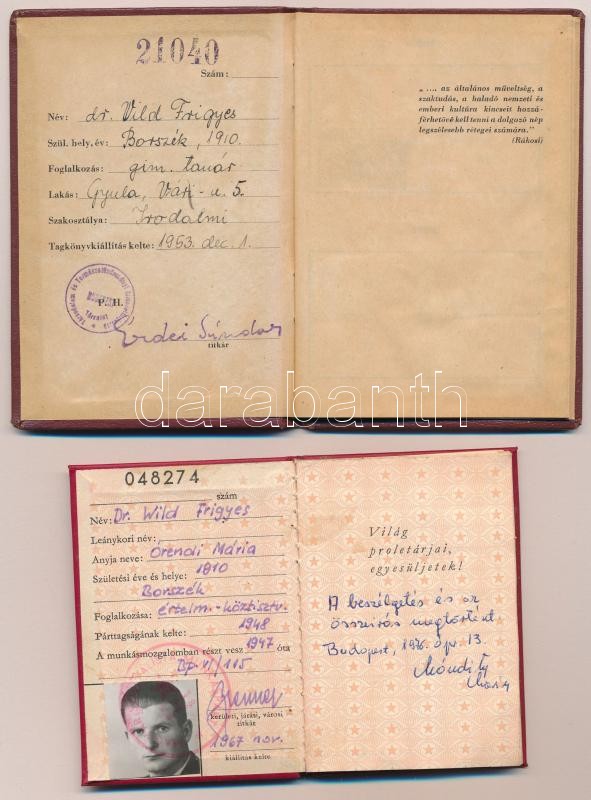 21040
Szám:
„ .... az általános műveltség, a
szaktudás, a haladó nemzeti és
emberi kultúra kincseit hozzá-
férhetővé kell tenni a dolgozó nép
legszélesebb rétegei számára."
(Rákosi)
Név: dr. Vild Frigyes
Szül. hely, év: Borszék, 1910.
Foglalkozás: gim. tanár
Lakás: Gyula, Vár - u. 5.
Szakosztálya: Irodalmi
Tagkönyvkiállítás kelte: 1953. dec. 1.
P. H.
Erdei Sándor
titkár
darabanth
048274
szám
Név: Dr. Wild Frigyes
Leánykori név:
Anyja neve: Orendi Mária
Születési éve és helye: 1910
Borszék
Foglalkozása: értelm.-köztisztv.
Párttagságának kelte: 1948
A munkásmozgalomban részt vesz 1947 óta
Bp. VI/115
kerületi, járási, városi
titkár
1967 nov.
kiállítás kelte
Világ
proletárjai,
egyesüljetek!
A beszélgetés és az
összeírás megtörtént
Budapest, 1976. ápr. 13.